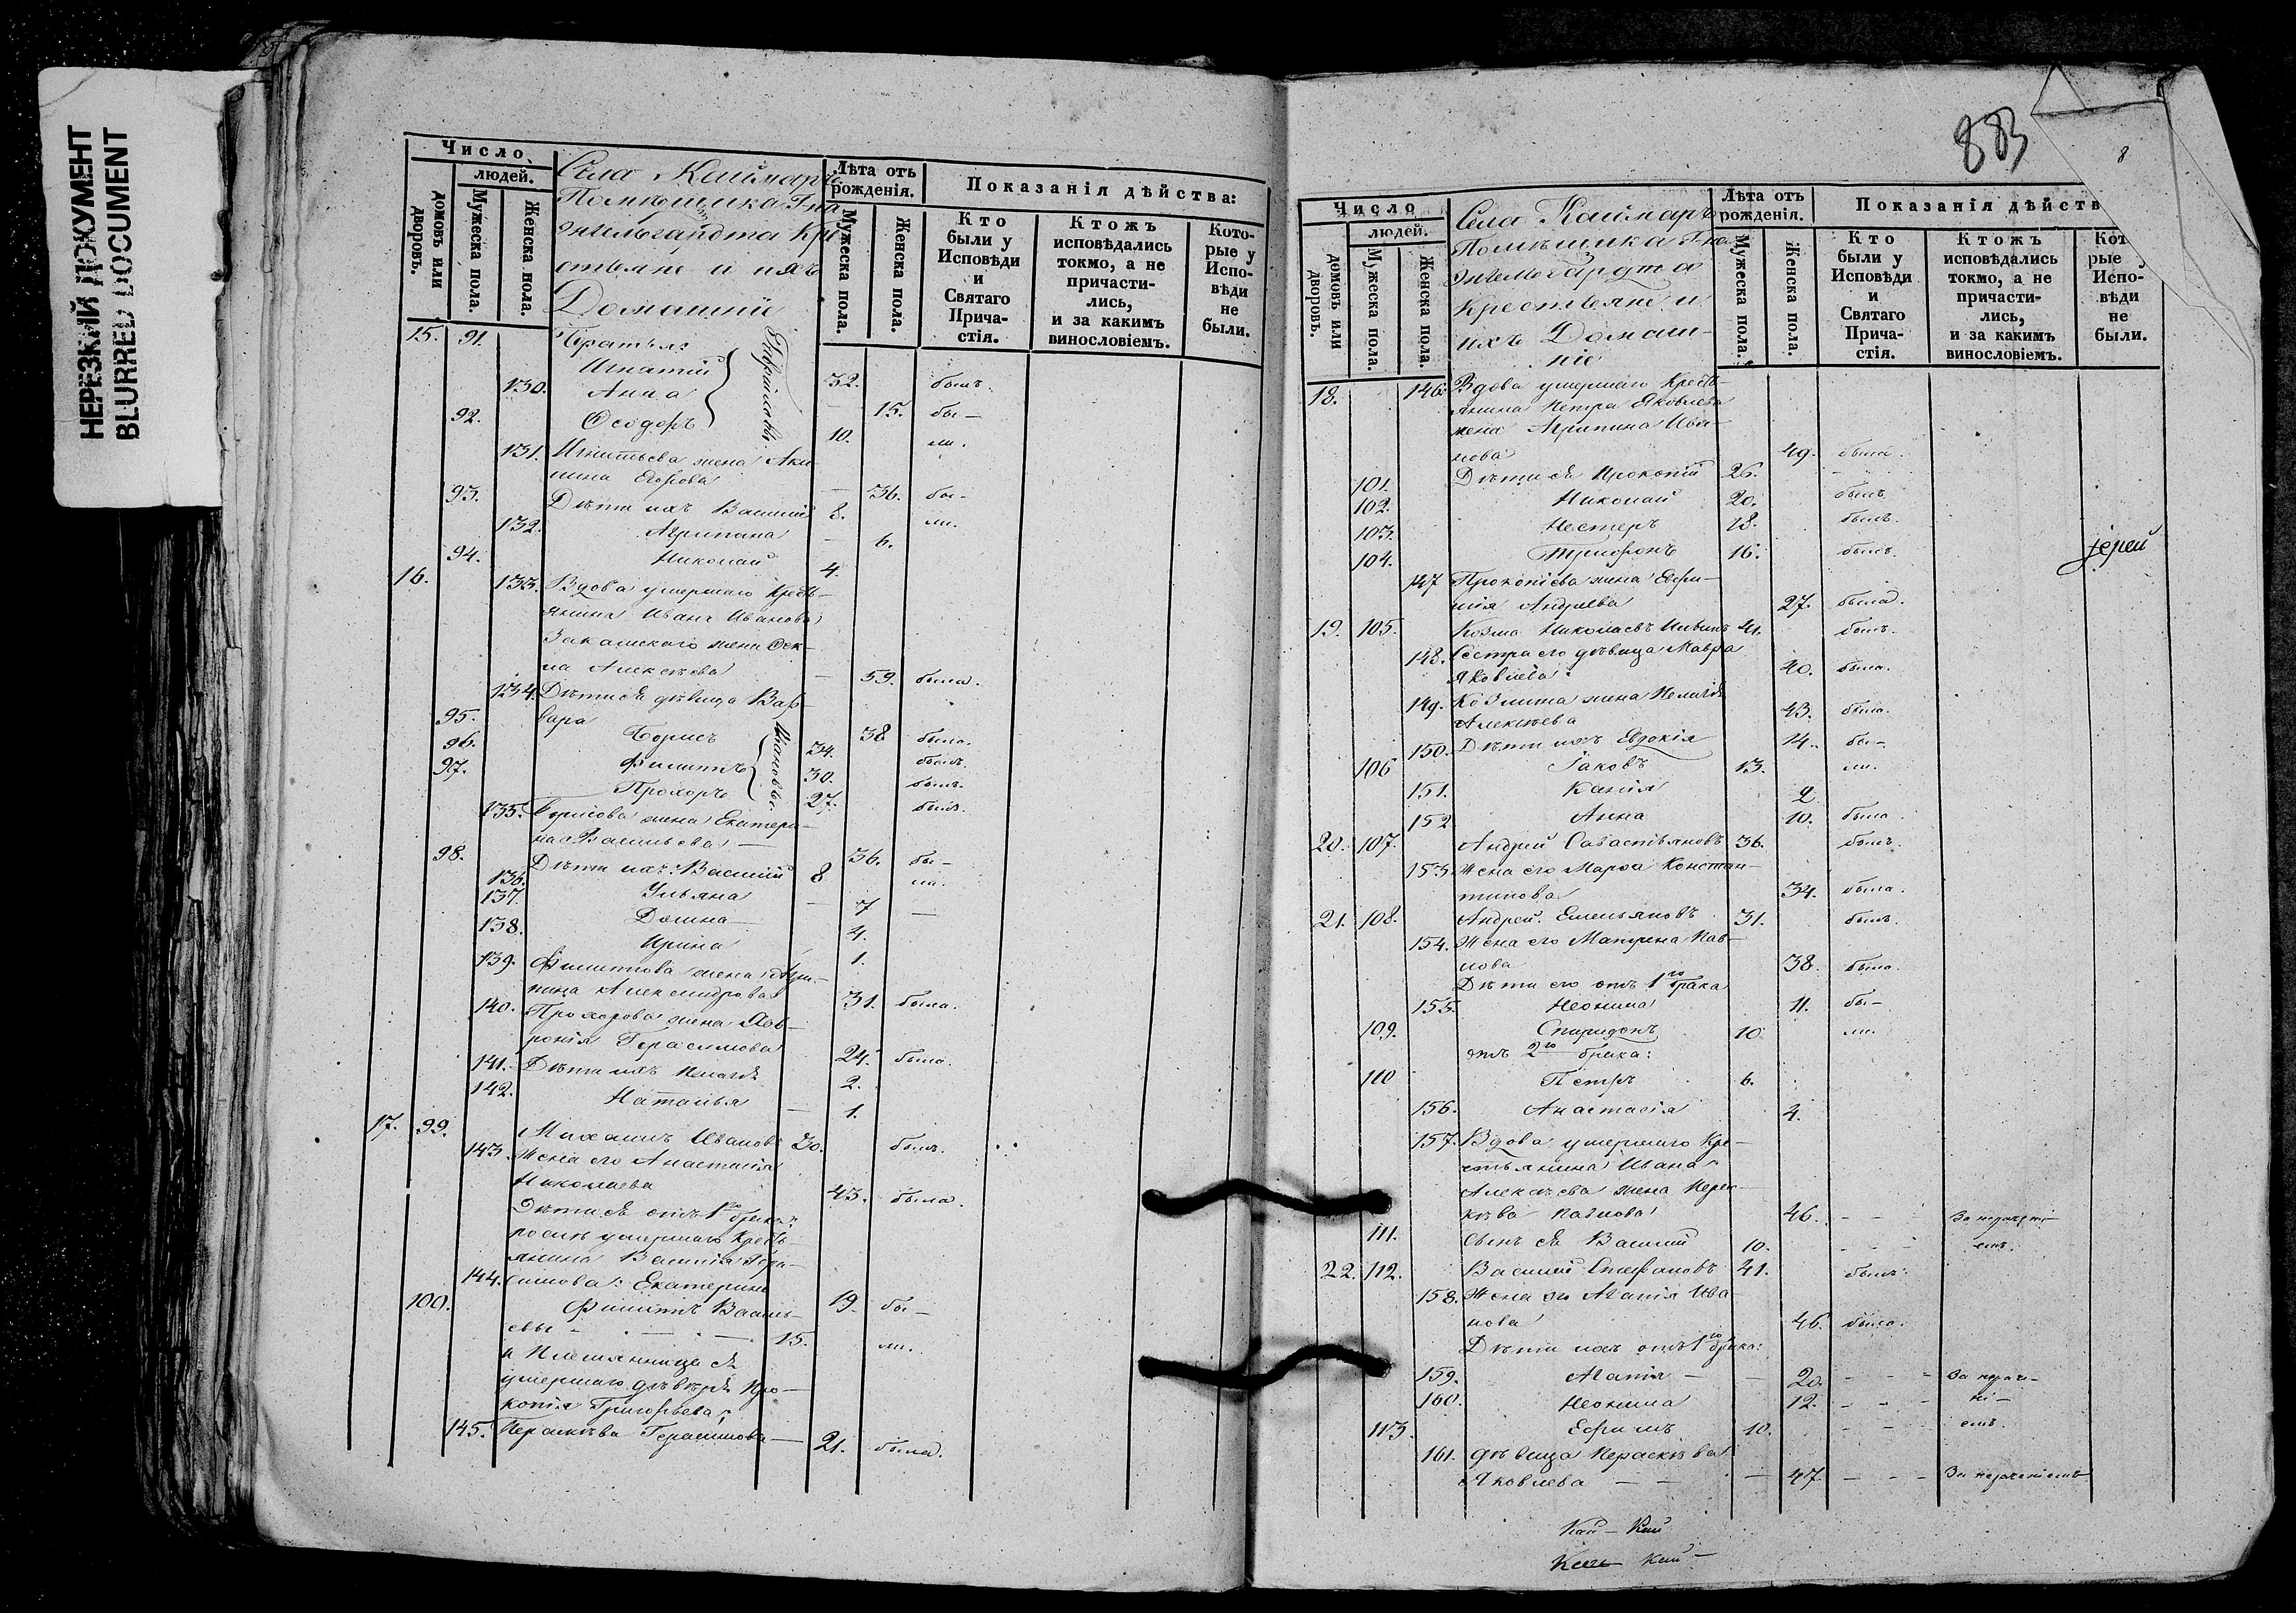 НЕРЕЗКИЙ ДОКУМЕНТ
BLURRED DOCUMENT
Число
людей.
домовъ или дворовъ.
Мужеска пола.
Женска пола.
Села Каймаръ
Помѣщика Г-на
Энгельгардта Кре
стьяне и ихъ
Домашніе
Лѣта отъ рожденія.
Мужеска пола.
Женска пола.
Показанія дѣйства:
Кто были у Исповѣди и Святаго Прича-стія.
Ктожъ исповѣдались токмо, а не причасти-лись, и за какимъ винословіемъ.
Кото-рые у Испо-вѣди не были.
15. 91. Братья:
Игнатій 32. былъ.
130. Анна — 15. бы —
92. Ѳеодоръ 10. ли.
Гавріиловы.
131. Игнатьева жена Аку-
лина Егорова — 36. бы-
93. Дѣти ихъ Василій 8. ли.
132. Агрипина — 6.
94. Николай 4.
16. 133. Вдова умершаго Кресть-
янина Ивана Иванова
Закамского жена Ѳек-
ла Алексѣева — 59. была.
134. Дѣти ея дѣвица Вар-
вара 38 была.
95. Борисъ 34. былъ.
96. Филиппъ 30. былъ.
97. Прохоръ 27. былъ.
Ивановы.
135. Борисова жена Екатери-
на Васильева — 36. бы —
98. Дѣти ихъ: Василій 8 ли.
136. Ульяна — 7 —
137. Домна 4.
138. Ирина 1.
139. Филиппова жена Агри-
пина Александрова 31. была.
140. Прохорова жена Хав-
ронія Герасимова 24. была.
141. Дѣти ихъ Пелагея 2.
142. Наталья — 1.
17. 99. Михаилъ Ивановъ 20. былъ.
143. Жена его Анастасія
Николаева 43. была.
Дѣти ея отъ 1го брака
умершаго Кресть-
янина Василія Гера-
144. симова: Екатерина 19. бы —
100. Филиппъ Василь-
евы 15. ли.
и Племянница ея
умершаго деверя Про-
копія Григорьева;
145. Параскева Герасимова — 21. была.
883
8
Число
людей.
домовъ или дворовъ.
Мужеска пола.
Женска пола.
Села Каймаръ
Помѣщика Г-на
Энгельгардта
Крестьяне и
ихъ Домаш-
ніе
Лѣта отъ рожденія.
Мужеска пола.
Женска пола.
Показанія дѣйств
Кто были у Исповѣди и Святаго Прича-стія.
Ктожъ исповѣдались токмо, а не причасти-лись, и за какимъ винословіемъ.
Кот рые у Испо-вѣди не были.
18. 146. Вдова умершаго Кресть-
янина Петра Яковлева
жена Агрипина Ива-
нова 49. была.
101. Дѣти ея Прокопій 26.
102. Николай 20. былъ
103. Нестеръ 18. былъ.
104. Трифонъ 16. былъ.
іерей
147 Прокопіева жена Евфи-
мія Андреева 27. была.
19. 105. Козма Николаевъ 41. былъ.
148. Сестра его дѣвица Мавра
Яковлева: 40. была.
149. Козмина жена Пелагея
Алексѣева 43. была.
150. Дѣти ихъ Евдокія 14. бы-
106 Іаковъ 13. ли.
151. Капія 2
152 Анна 10. была.
20. 107. Андрей Савастьяновъ 36. былъ.
153. Жена его Марѳа Констан-
тинова 34. была.
21. 108. Андрей Емельяновъ 31. былъ.
154. Жена его Матрена Пав-
лова 38. была.
Дѣти его отъ 1го брака
155. Неонила 11. бы-
109. Спиридонъ 10 ли.
отъ 2го брака:
110 Петръ 6.
156. Анастасія 4.
157. Вдова умершаго Кре-
стьянина Ивана
Алексѣева жена Парас-
кева Павлова 46. - - За нераченi-
111. Сынъ ея Василій 10. - - емъ.
22. 112. Василій Стефановъ 41. былъ.
158. Жена его Агапія Ива-
нова 46. была.
Дѣти ихъ отъ 1го брака:
159. Агапія — — 20. - - - За нераче-
160. Неонила 12. - - - ні-
113. Ефимъ 10. - - емъ.
161. дѣвица Параскева
Яковлева — — — 47. - - - За нераченіемъ
Кай — Кай
Кай —